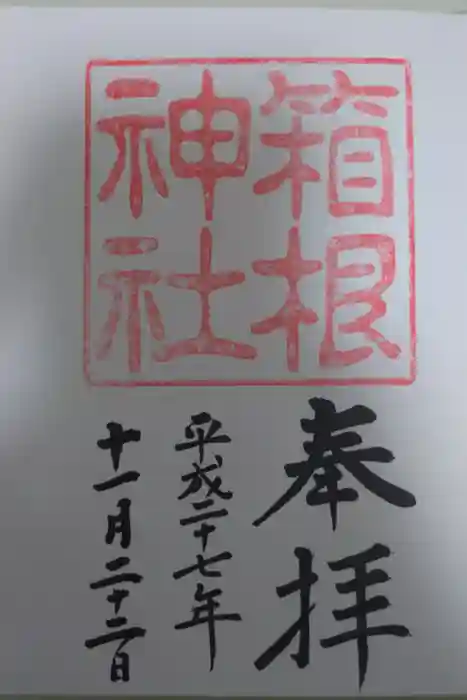 箱根
神社
奉拝
平成二十七年
十一月二十二日